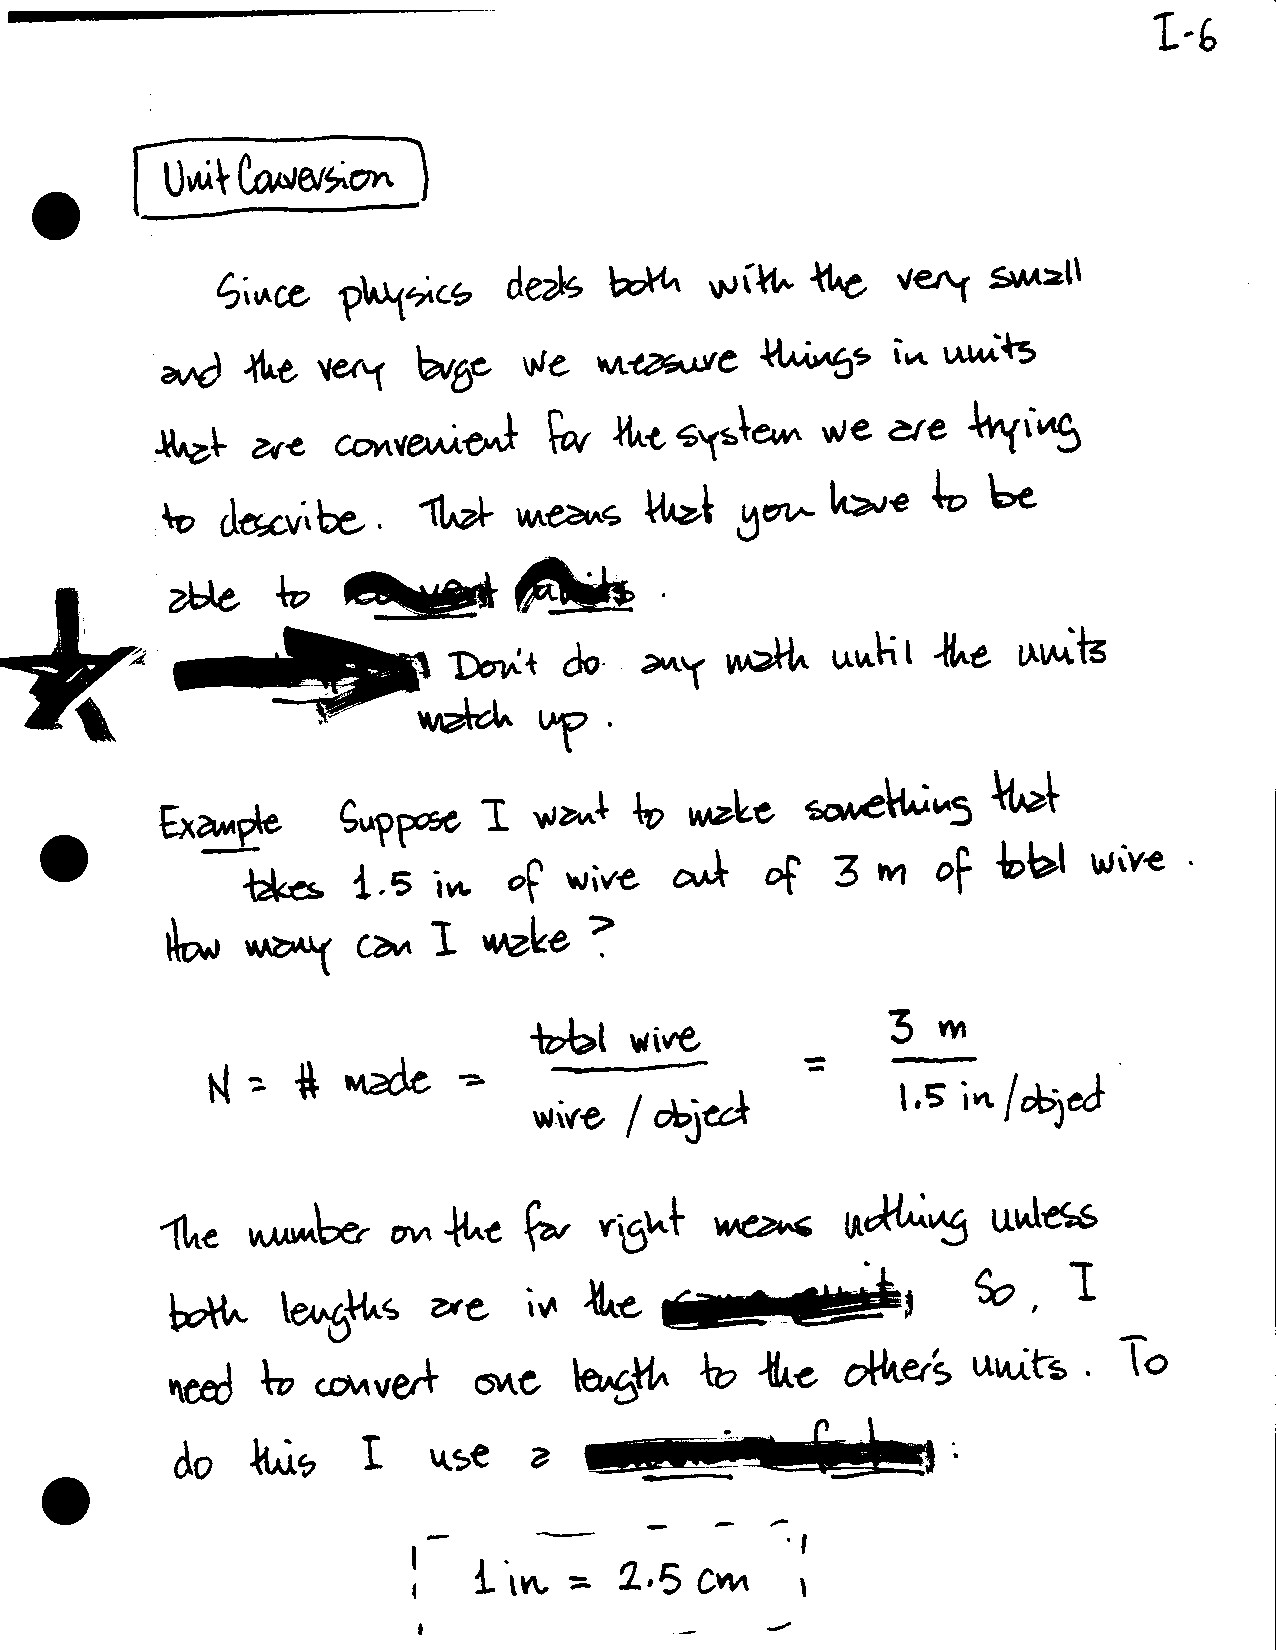 I-6
Unit Conversion
Since physics deals both with the very small
and the very large we measure things in units
that are convenient for the system we are trying
to describe. That means that you have to be
able to convert units.
Don't do any math until the units
match up.
Example Suppose I want to make something that
takes 1.5 in of wire out of 3 m of total wire.
How many can I make?
total wire 3 m
N = # made = =
wire / object 1.5 in/object
The number on the far right means nothing unless
both lengths are in the So, I
need to convert one length to the other's units. To
do this I use a :
1 in = 2.5 cm